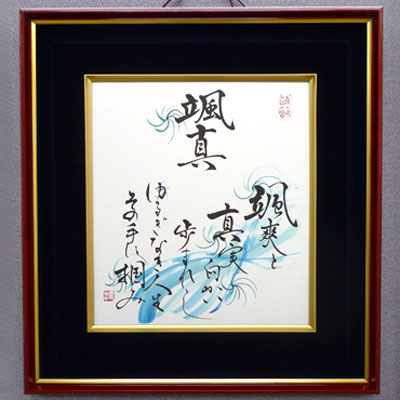 颯真
颯爽と
真実に向かい
歩まれし
ゆるぎなき人生
その手に掴み